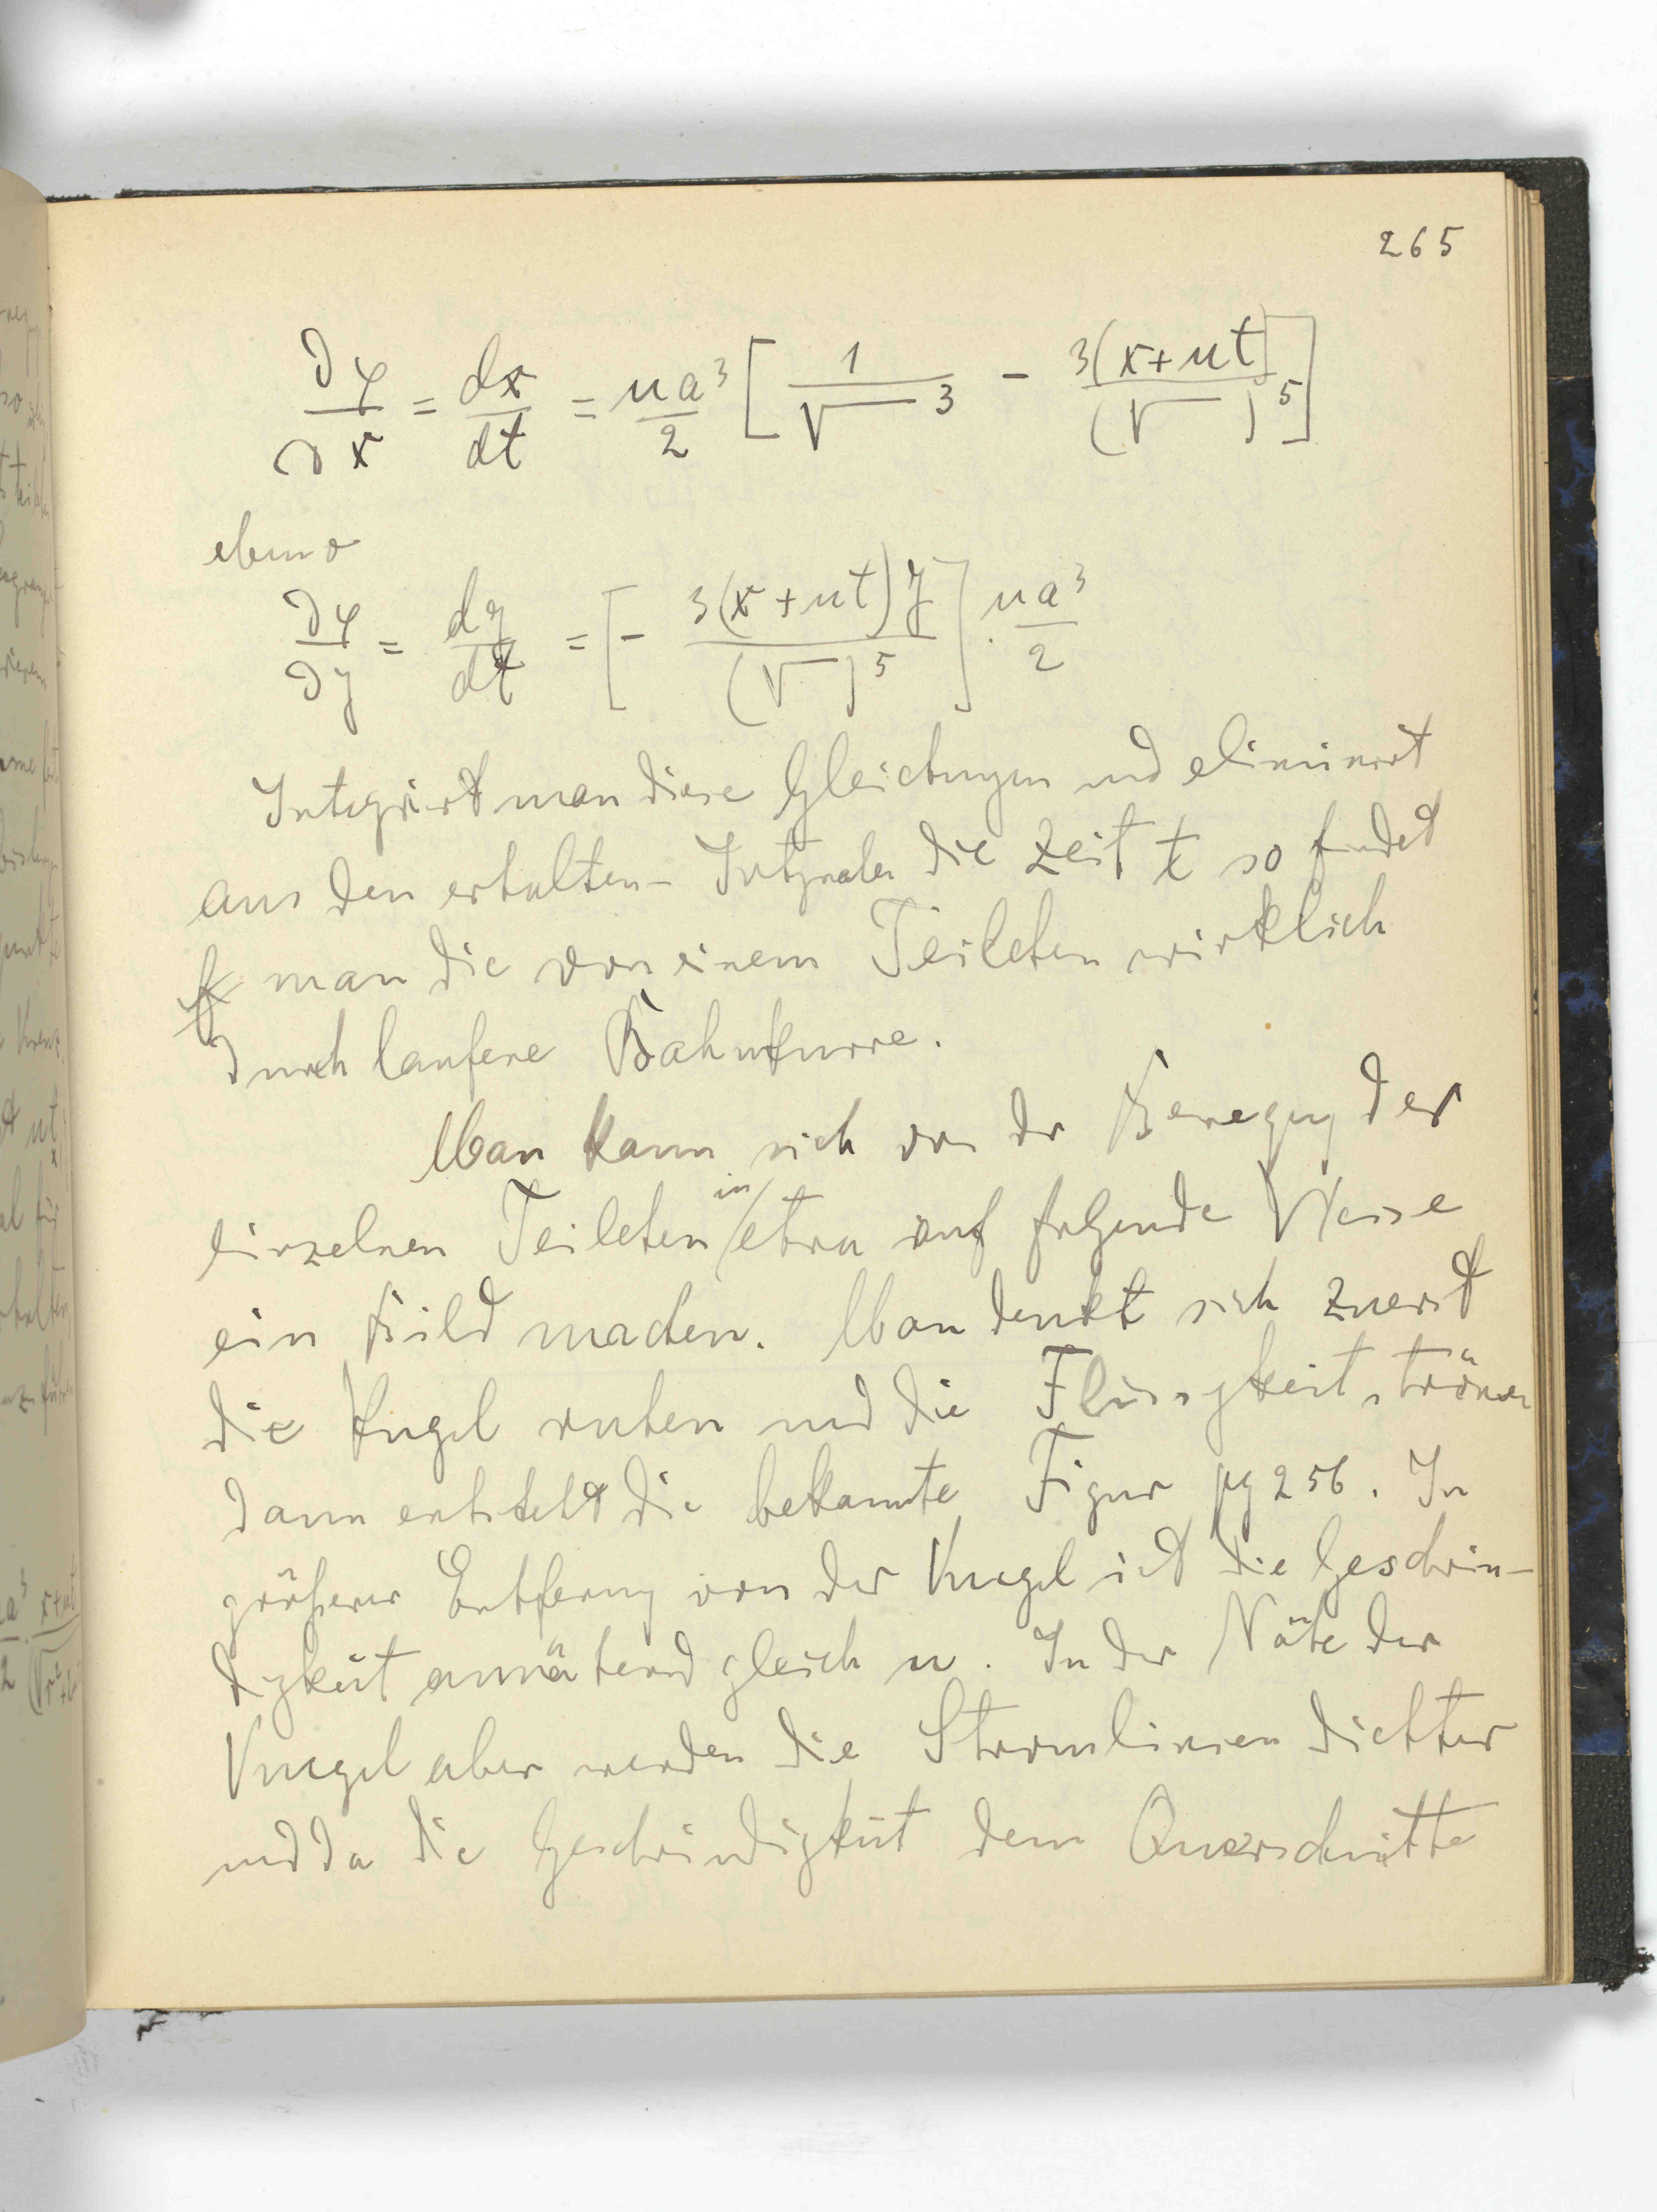 265
∂φ/∂x = dx/dt = ua³/2 [ 1/√‾‾³ − 3(x+ut)/(√‾‾)⁵ ]
ebenso
∂φ/∂y = dy/dt = [ − 3(x+ut)y/(√‾‾)⁵ ] · ua³/2
Integrirt man diese Gleichungen und eliminirt
aus den erhaltenen Integralen die Zeit t so findet
man die von einem Teilchen wirklich
durchlaufene Bahnkurve.
Man kann sich von der Bewegung der
einzelnen Teilchen in etwa auf folgende Weise
ein Bild machen. Man denkt sich zuerst
die Kugel ruhen und die Flüssigkeit strömen
dann entsteht die bekannte Figur pg 256. In
größerer Entfernung von der Kugel ist die Geschwin-
digkeit annähernd gleich u. In der Nähe der
Kugel aber werden die Stromlinien dichter
und da die Geschwindigkeit dem Querschnitte